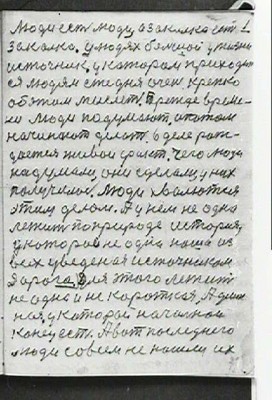 Люди есть люди, а закалка есть
закалка. У людях бывший у жизни
источник, у котором приходит
ся людям сегодня очень крепко
об этом мыслить. Прежде време
ни люди подумают, а потом
начинают делать. В деле рож
дается живой факт, чего люди
надумали, они сделали, у них
получилось. Люди хвалятся
этим делом. А у нём не одна
лежит по природе история,
у которой не одна наша из
всех уведеная источником
дорога. Для этого лежит
не одна и не короткая. А длин
ная, у которой начальной
конец есть. А вот последнего
люди совсем не нашли их